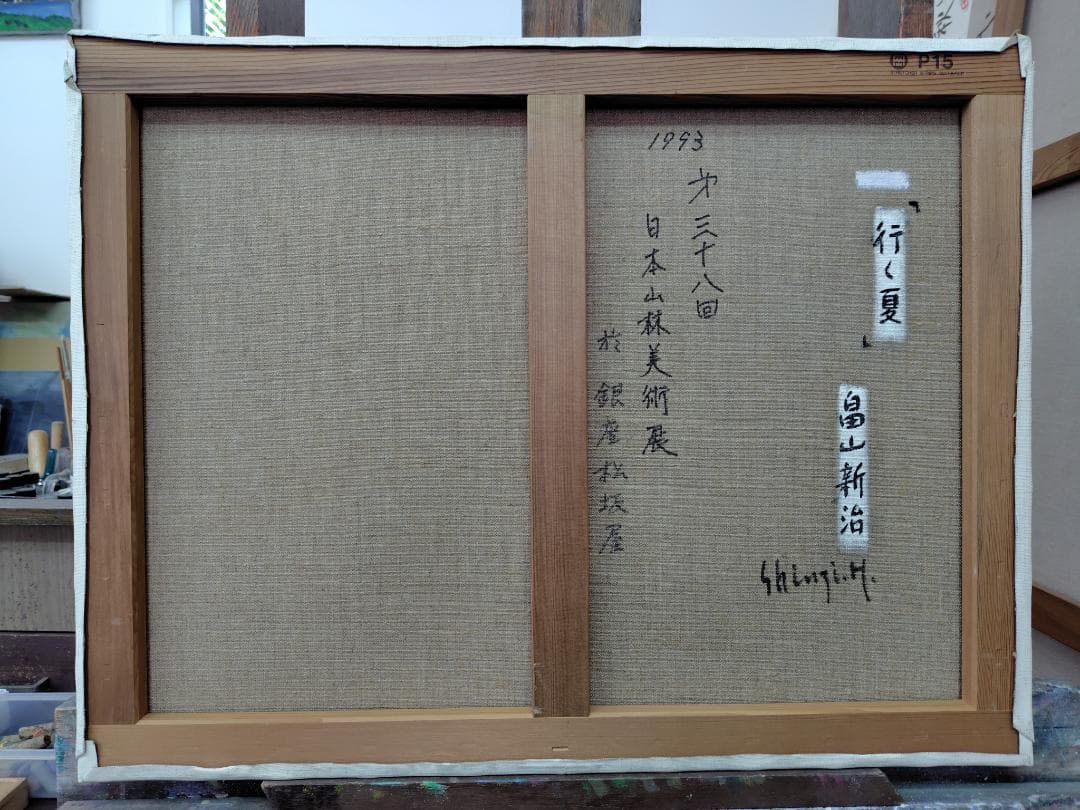 P15
「行く夏」
畠山新治
Shinji.H.
1993
才三十八回
日本山林美術展
於銀座松坂屋